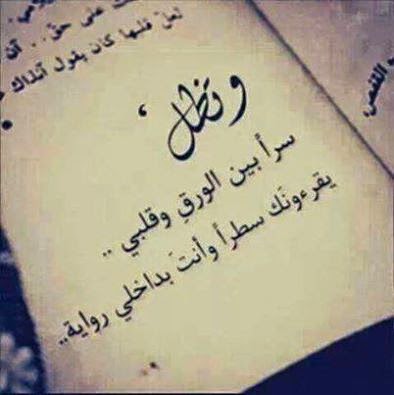 على حق .. أن
لعل قلبها كان يقول آنذاك
وتظل ،
سراً بين الورقِ وقلبي ..
يقرءونَك سطراً وأنتَ بداخلي رواية..
القفص